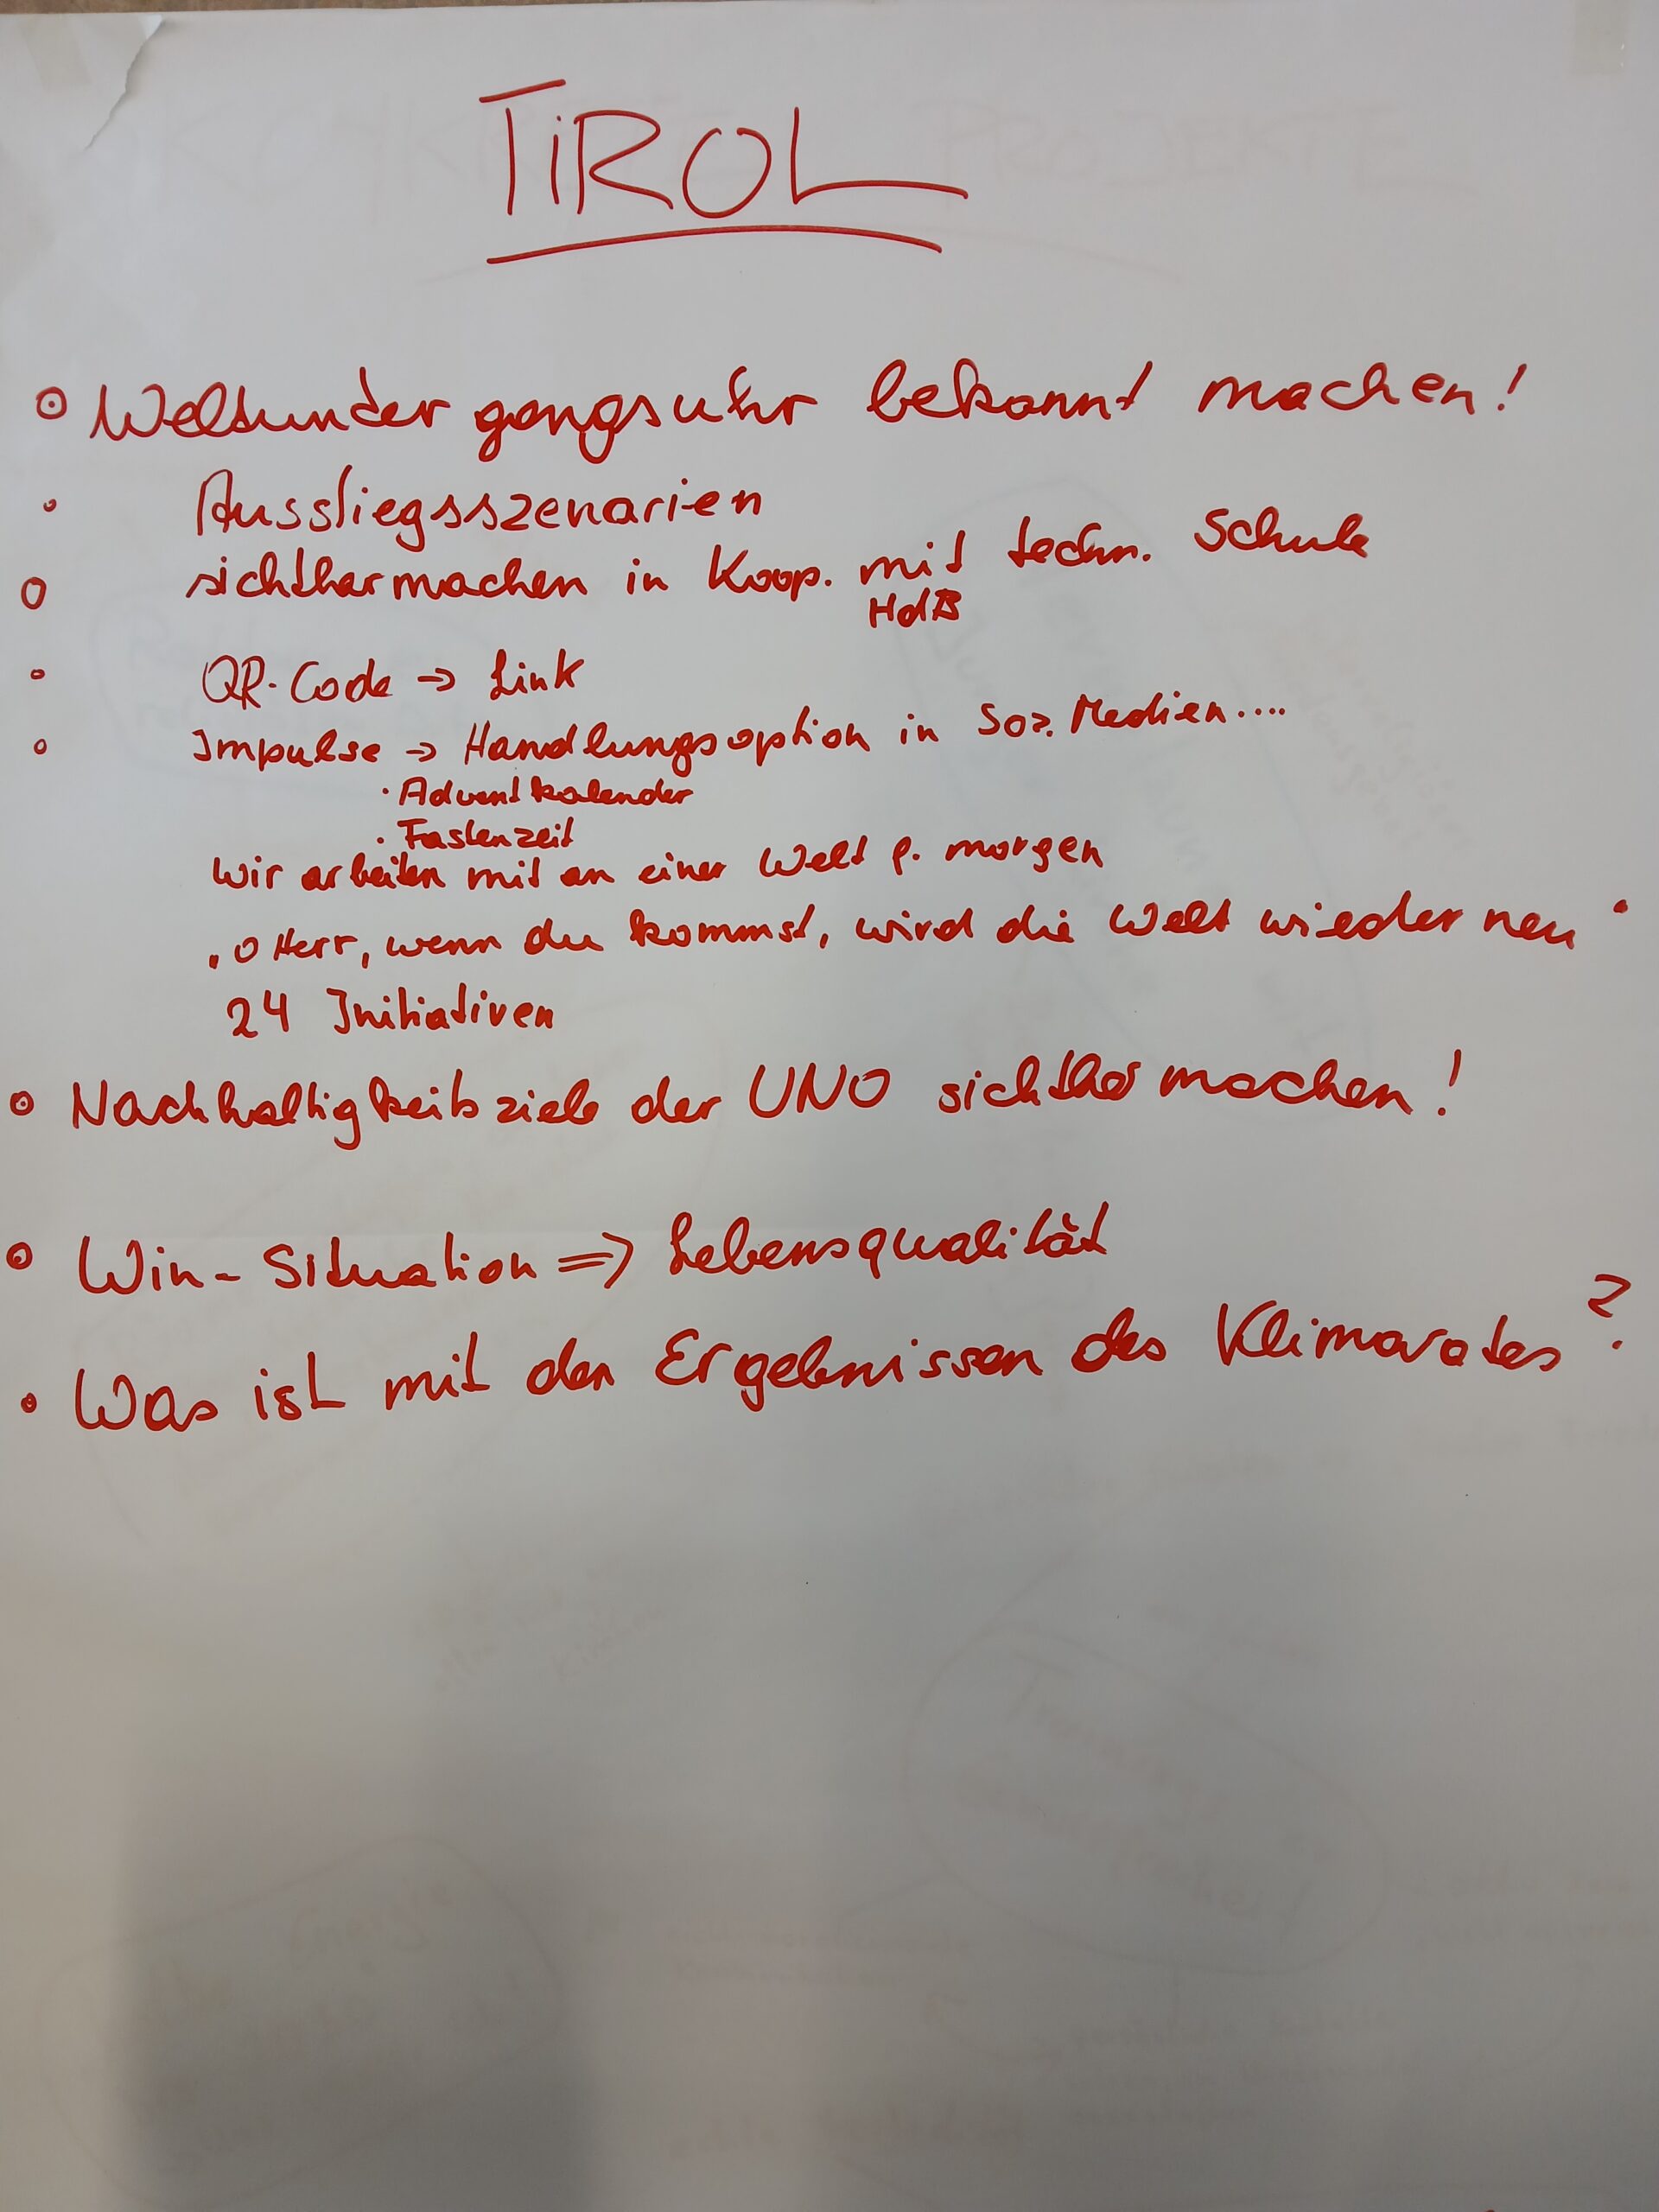 TIROL
Weltuntergangsuhr bekannt machen!
Ausstiegsszenarien
sichtbar machen in Koop. mit techn. Schule
HdB
QR-Code → Link
Impulse → Handlungsoption in Soz. Medien....
· Adventkalender
· Fastenzeit
Wir arbeiten mit an einer Welt f. morgen
"O Herr, wenn du kommst, wird die Welt wieder neu"
24 Initiativen
Nachhaltigkeitsziele der UNO sichtbar machen!
Win-Situation ⇒ Lebensqualität
Was ist mit den Ergebnissen des Klimarates?